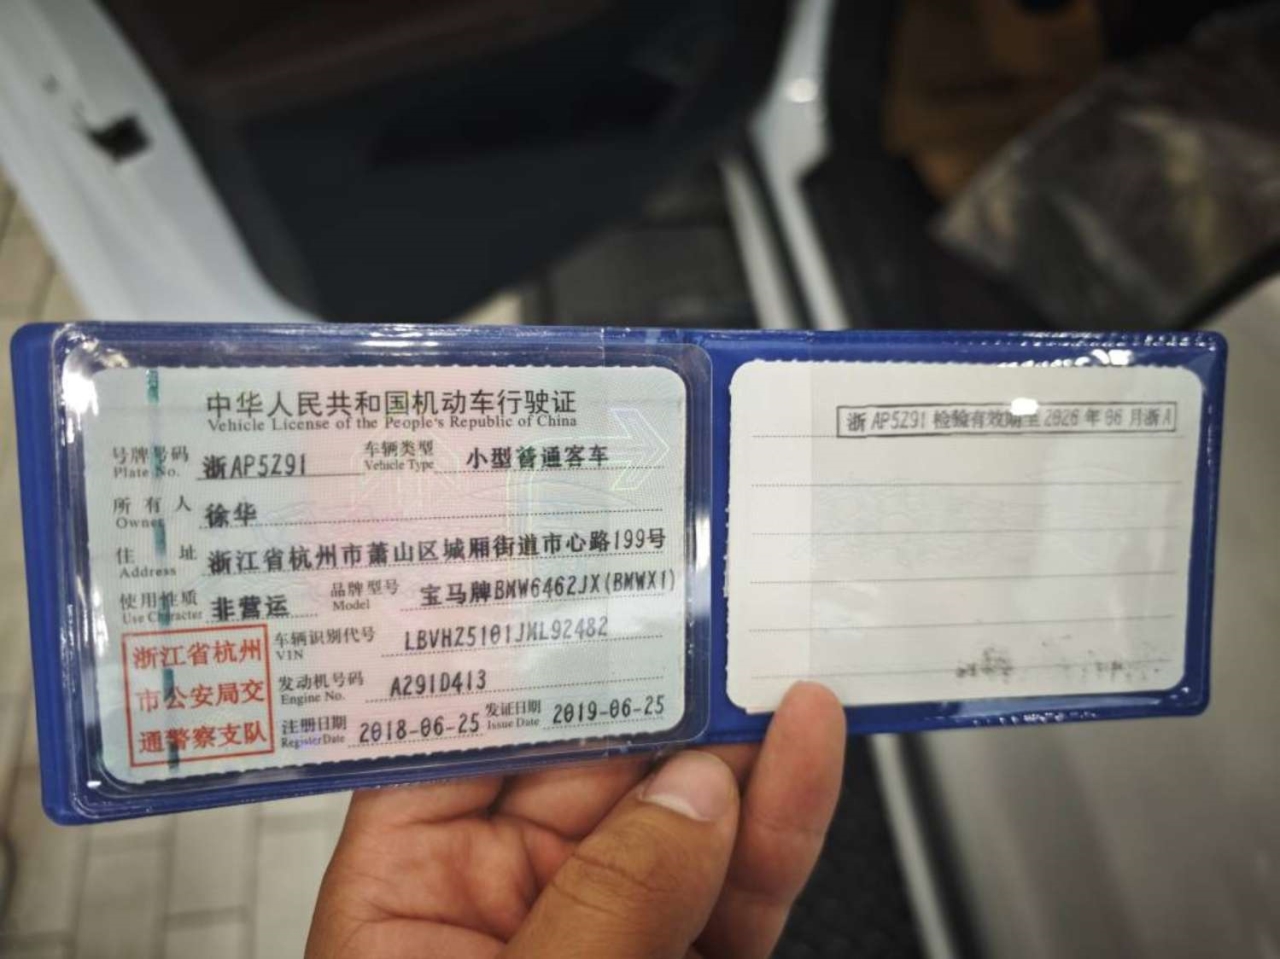 中华人民共和国机动车行驶证
Vehicle License of the People's Republic of China
号牌号码 浙AP5Z91 车辆类型 小型普通客车
Plate No. Vehicle Type
所有人 徐华
Owner
住址 浙江省杭州市萧山区城厢街道市心路199号
Address
使用性质 非营运 品牌型号 宝马牌BMW6462JX(BMWX1)
Use Character Model
浙江省杭州
市公安局交
通警察支队
车辆识别代号 LBVHZ5101JML92482
VIN
发动机号码 A291D413
Engine No.
注册日期 2018-06-25 发证日期 2019-06-25
Register Date Issue Date
浙AP5Z91 检验有效期至2026年06月浙A